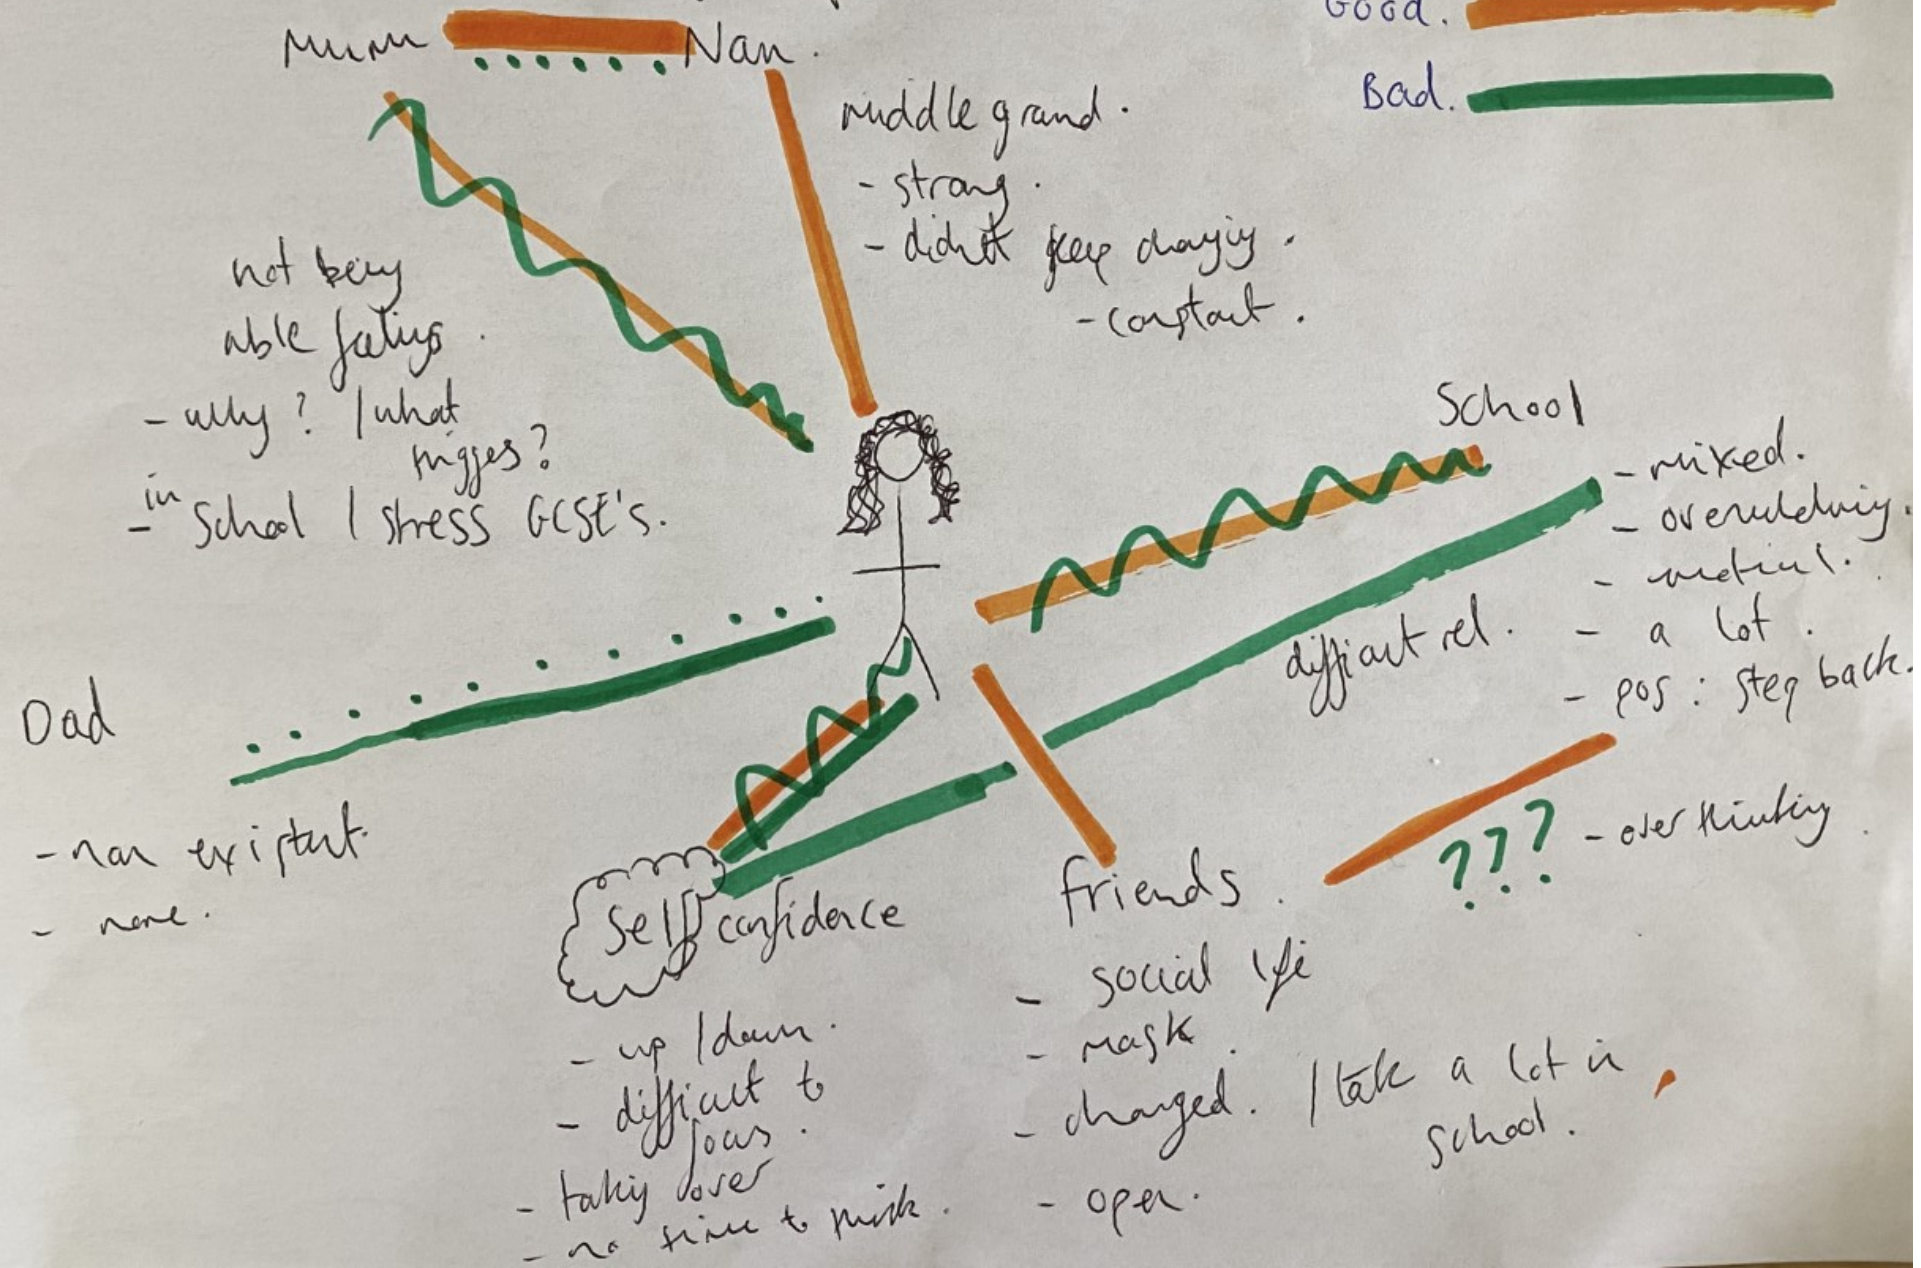 Good.
Mum
Nan.
Bad.
middle grand.
- strong.
- didnt keep changing.
- constant.
not being
able feelings.
- why? / what
triggers?
in
- School / stress GCSE's.
School
- mixed.
- overwhelming.
- a lot.
- pos: step back.
difficult rel.
Dad
- non existent.
- none.
??? - over thinking
Self confidence
- up / down.
- difficult to
focus.
- taking over
- no time to think.
friends.
- social life
- mask.
- changed. / take a lot in
school.
- open.